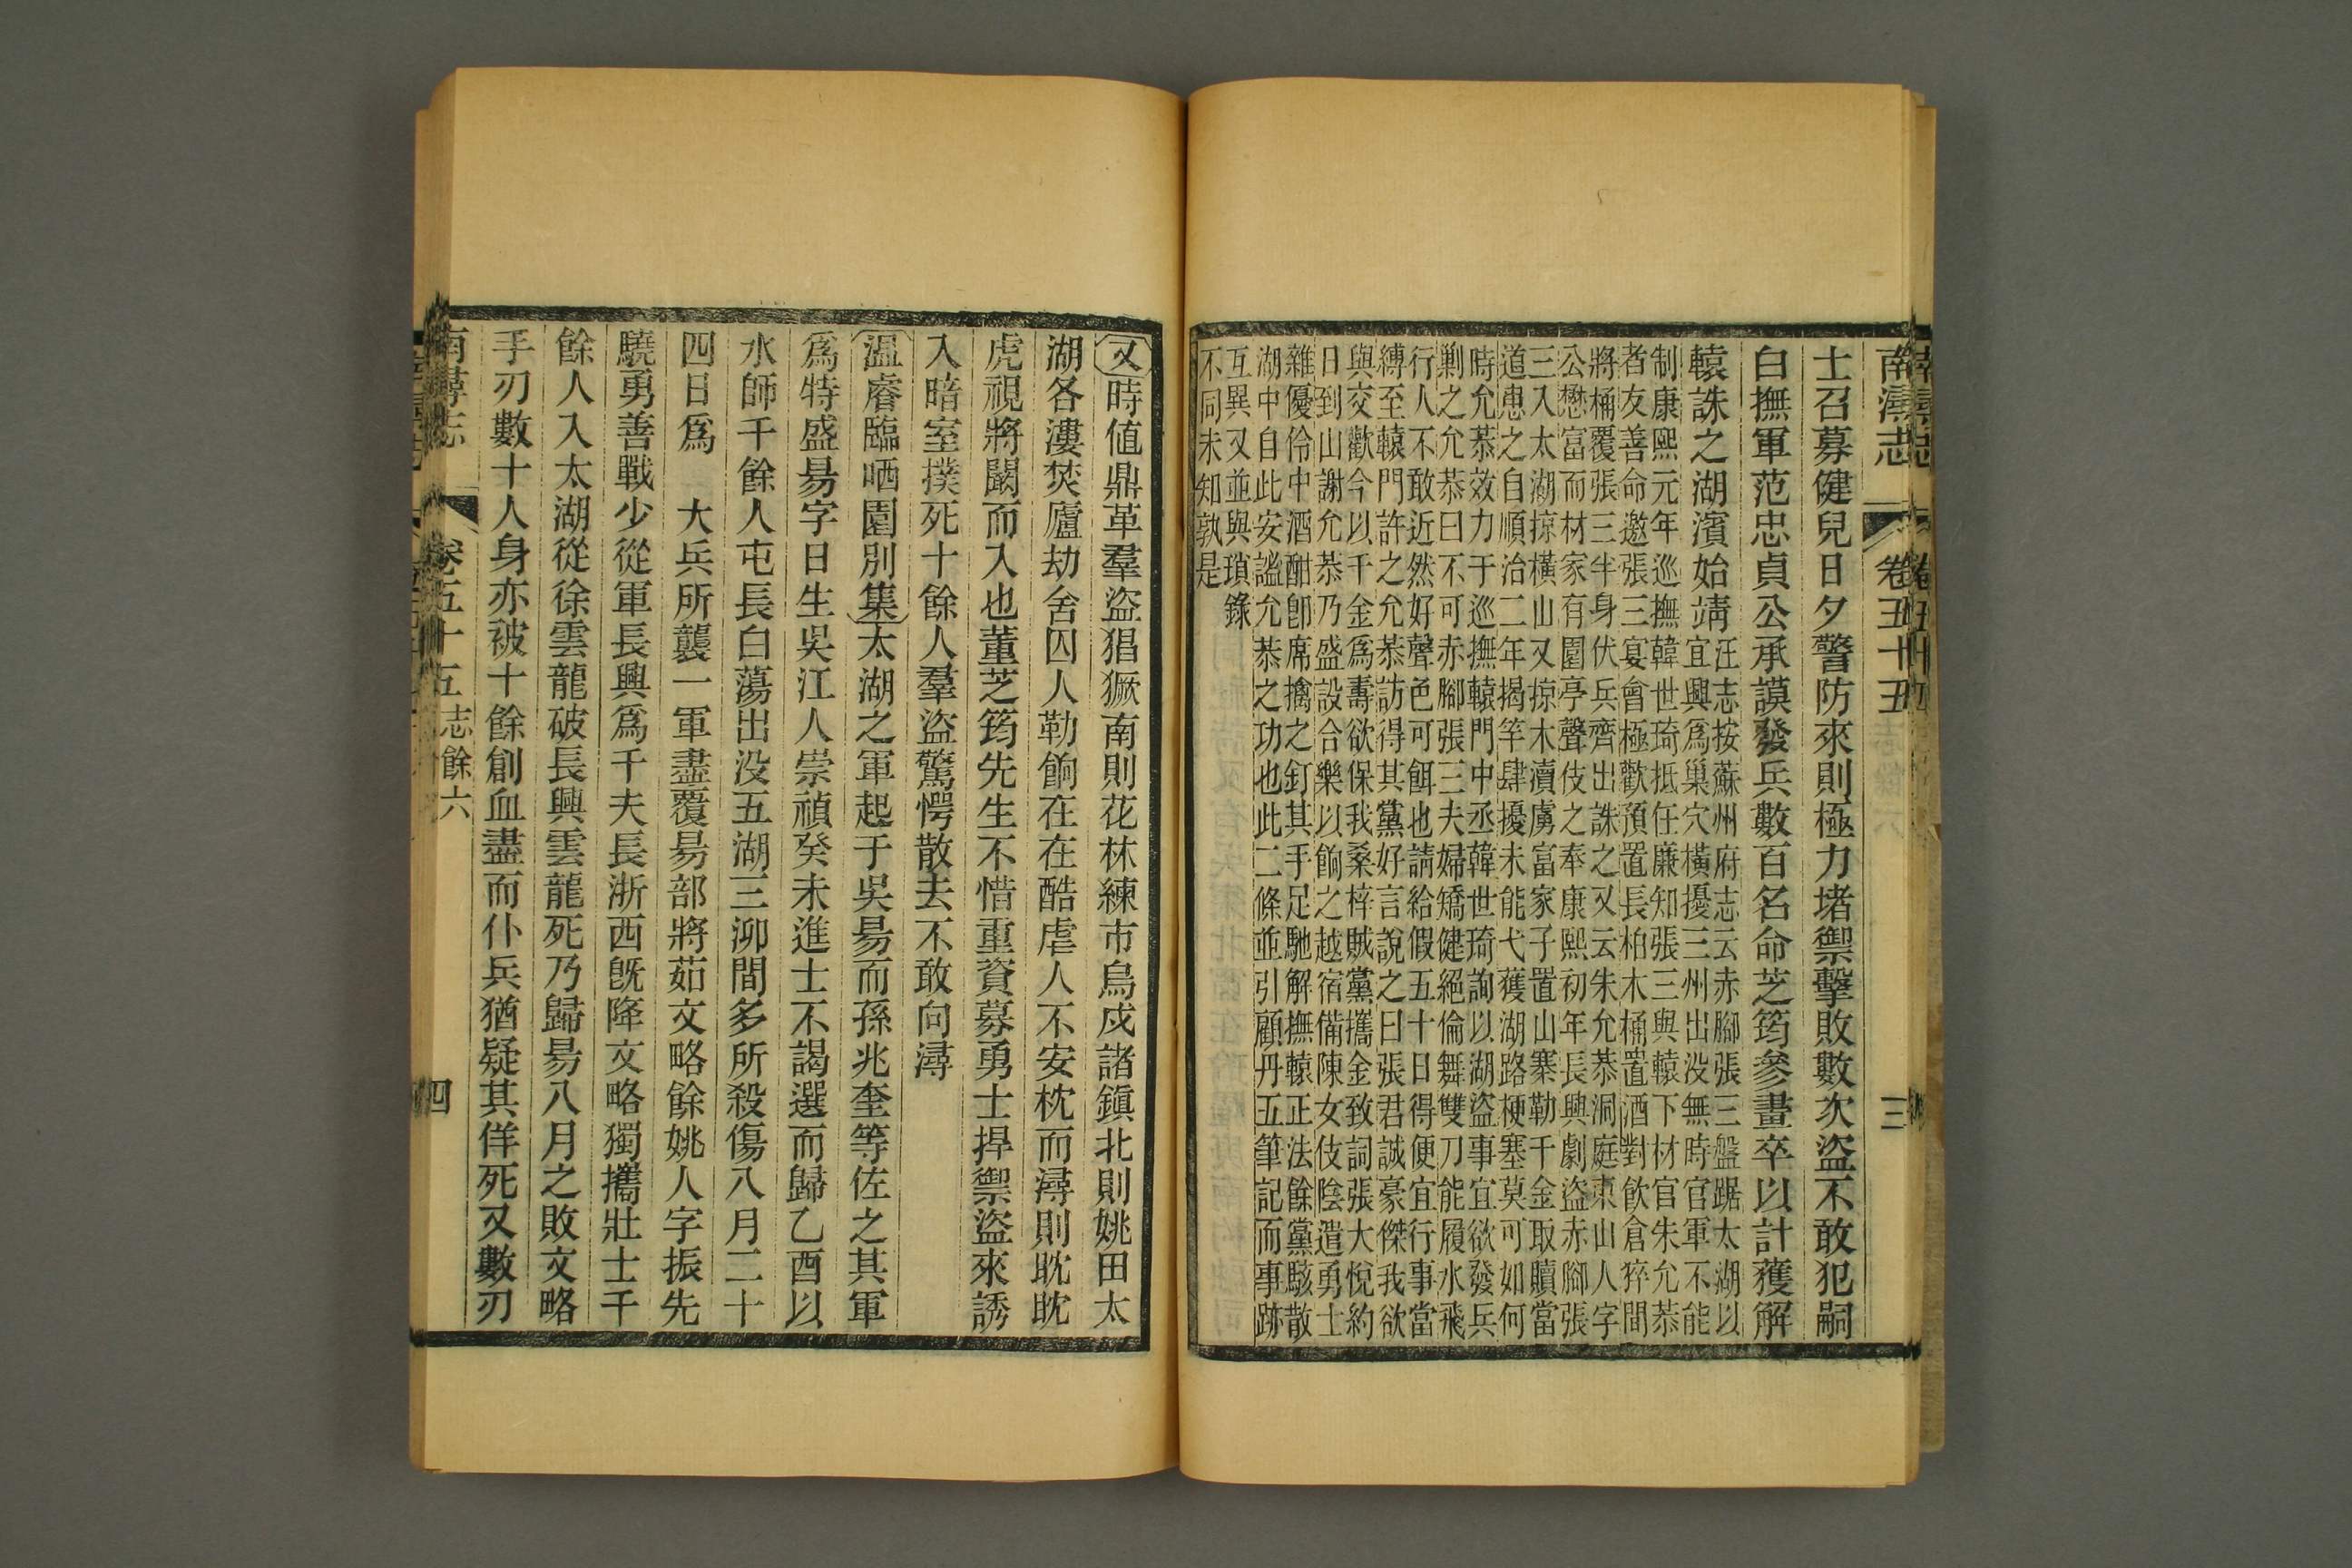 南潯志 卷五十五 三
士召募健兒日夕警防來則極力堵禦擊敗數次盜不敢犯嗣
白撫軍范忠貞公承謨發兵數百名命芝筠參畫卒以計獲解
轅誅之湖濱始靖
汪志按蘇州府志云赤腳張三盤踞太湖以
宜興爲巢穴橫擾三州出没無時官軍不能
制康熙元年巡撫韓世琦抵任廉知張三與轅下材官朱允恭
者友善命邀張三宴會極歡預置長柏木桶置酒對飲倉猝間
將桶覆張三半身伏兵齊出誅之又云朱允恭洞庭東山人字
公懋富而材家有園亭聲伎之奉康熙初年長興劇盜赤腳張
三入太湖掠橫山又掠木瀆虜富家子置山寨勒千金取贖當
道患之自順治二年揭竿肆擾未能弋獲湖路梗塞莫可如何
時允恭效力于巡撫轅門中丞韓世琦詢以湖盜事宜欲發兵
剿之允恭曰不可赤腳張三夫婦矯健絕倫舞雙刀能履水飛
行人不敢近然好聲色可餌也請給假五十日得便宜行事當
縛至轅門許之允恭訪得其黨好言說之曰張君誠豪傑我欲
與交歡今以千金爲壽欲保我桑梓賊黨攜金致詞張大悅約
日到山謝允恭乃盛設合樂以餉之越宿備陳女伎陰遣勇士
雜優伶中酒酣卽席擒之釘其手足馳解撫轅正法餘黨駭散
湖中自此安謐允恭之功也此二條並引顧丹五筆記而事跡
互異又並與瑣錄
不同未知孰是
又時値鼎革羣盜猖獗南則花林練市烏戍諸鎭北則姚田太
湖各漊焚廬劫舍囚人勒餉在在酷虐人不安枕而潯則眈眈
虎視將闞而入也董芝筠先生不惜重資募勇士捍禦盜來誘
入暗室撲死十餘人羣盜驚愕散去不敢向潯
溫睿臨哂園別集太湖之軍起于吳昜而孫兆奎等佐之其軍
爲特盛昜字日生吳江人崇禎癸未進士不謁選而歸乙酉以
水師千餘人屯長白蕩出没五湖三泖間多所殺傷八月二十
四日爲 大兵所襲一軍盡覆昜部將茹文略餘姚人字振先
驍勇善戰少從軍長興爲千夫長浙西旣降文略獨攜壯士千
餘人入太湖從徐雲龍破長興雲龍死乃歸昜八月之敗文略
手刃數十人身亦被十餘創血盡而仆兵猶疑其佯死又數刃
南潯志 卷五十五 志餘六 四